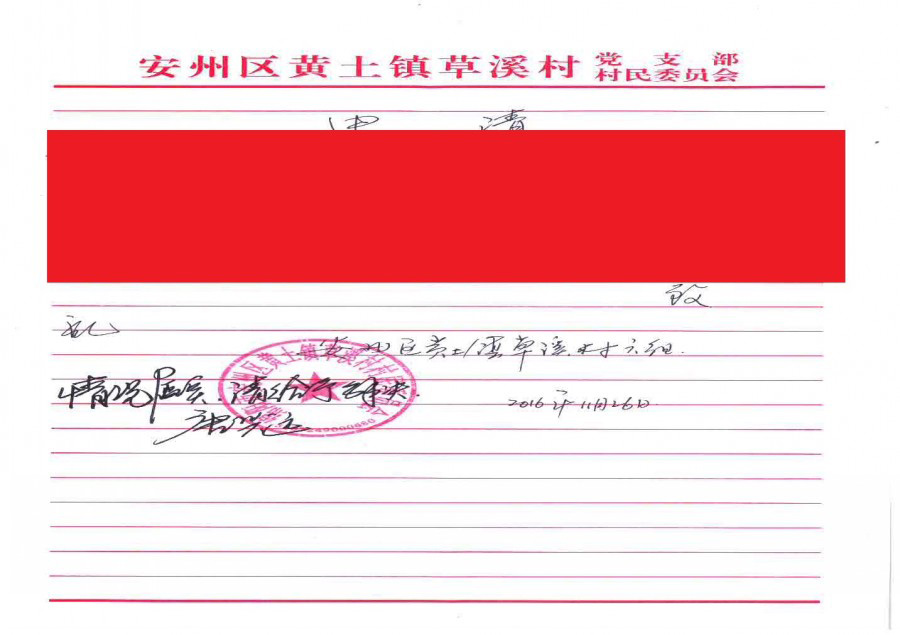 安州区黄土镇草溪村 党支部
村民委员会
申 请
致
礼
安州区黄土镇草溪村六组.
情况属实.请给予解决.
2016年11月26日